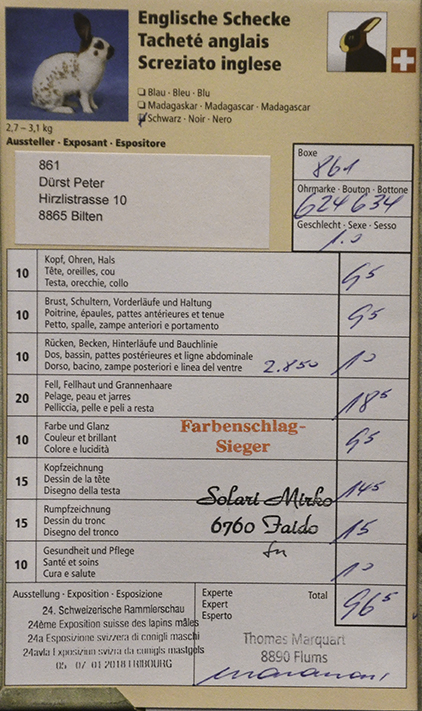 Englische Schecke
Tacheté anglais
Screziato inglese
Blau · Bleu · Blu
Madagaskar · Madagascar · Madagascar
Schwarz · Noir · Nero
2,7 – 3,1 kg
Aussteller · Exposant · Espositore
861
Dürst Peter
Hirzlistrasse 10
8865 Bilten
Boxe
861
Ohrmarke · Bouton · Bottone
624 634
Geschlecht · Sexe · Sesso
1.0
10 Kopf, Ohren, Hals
Tête, oreilles, cou
Testa, orecchie, collo
9⁵
10 Brust, Schultern, Vorderläufe und Haltung
Poitrine, épaules, pattes antérieures et tenue
Petto, spalle, zampe anteriori e portamento
9⁵
10 Rücken, Becken, Hinterläufe und Bauchlinie
Dos, bassin, pattes postérieures et ligne abdominale
Dorso, bacino, zampe posteriori e linea del ventre
2.850 10
20 Fell, Fellhaut und Grannenhaare
Pelage, peau et jarres
Pelliccia, pelle e peli a resta
18⁵
10 Farbe und Glanz
Couleur et brillant
Colore e lucidità
Farbenschlag-
Sieger
9⁵
15 Kopfzeichnung
Dessin de la tête
Disegno della testa
14⁵
Solari Mirko
15 Rumpfzeichnung
Dessin du tronc
Disegno del tronco
6760 Faido
15
10 Gesundheit und Pflege
Santé et soins
Cura e salute
10
Ausstellung · Exposition · Esposizione
24. Schweizerische Rammlerschau
24ème Exposition suisse des lapins mâles
24a Esposizione svizzera di conigli maschi
24avla Exposiziun svizra da conigls mastgels
05 - 07 01 2018 FRIBOURG
Experte
Expert
Esperto
Total
96⁵
Thomas Marquart
8890 Flums